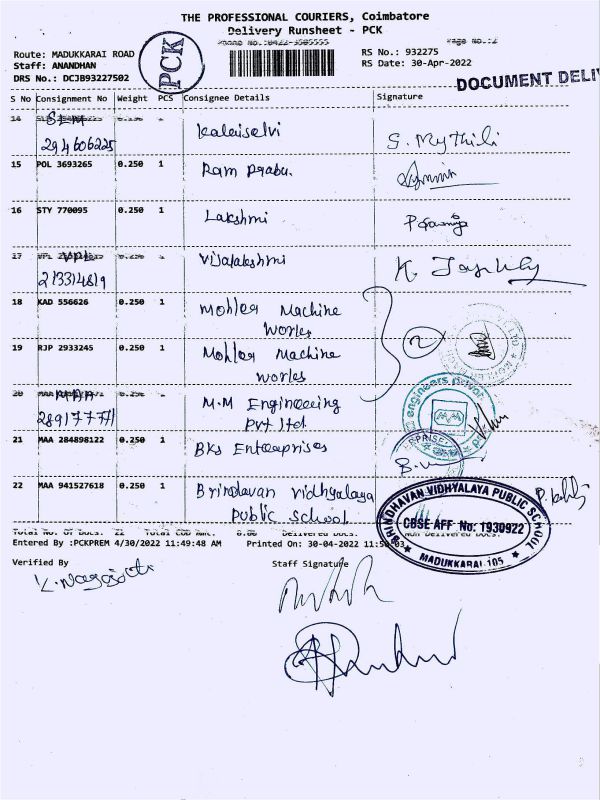 THE PROFESSIONAL COURIERS, Coimbatore
Delivery Runsheet - PCK
Phone No.:0422-3505555 Page No.:2
Route: MADUKKARAI ROAD RS No.: 932275
Staff: ANANDHAN RS Date: 30-Apr-2022
DRS No.: DCJB93227502
PCK
DOCUMENT DELI
S No Consignment No Weight PCS Consignee Details Signature
14 SLM
294606225 Kalaiselvi S. Mythili
15 POL 3693265 0.250 1 Ram Prabu.
16 STY 770095 0.250 1 Lakshmi
17 VPL 0.250 1 Vijalakshmi
213314819
18 KAD 556626 0.250 1 Mohler Machine
Works
2
19 RJP 2933245 0.250 1 Mohler Machine
Works
20 MAA 0.250 1 M.M Engineering
289177771 Pvt ltd
engineers privat
21 MAA 284898122 0.250 1 BKS Enterprises
22 MAA 941527618 0.250 1 Brindavan vidhyalaya
Public School
BRINDHAVAN VIDHYALAYA PUBLIC SCHOOL
CBSE AFF No: 1930922
MADUKKARAI-105
Total No. of Docs. 22 Total COD Amt. 0.00 Delivered Docs. Non Delivered Docs.
Entered By :PCKPREM 4/30/2022 11:49:48 AM Printed On: 30-04-2022 11:50:03
Verified By Staff Signature